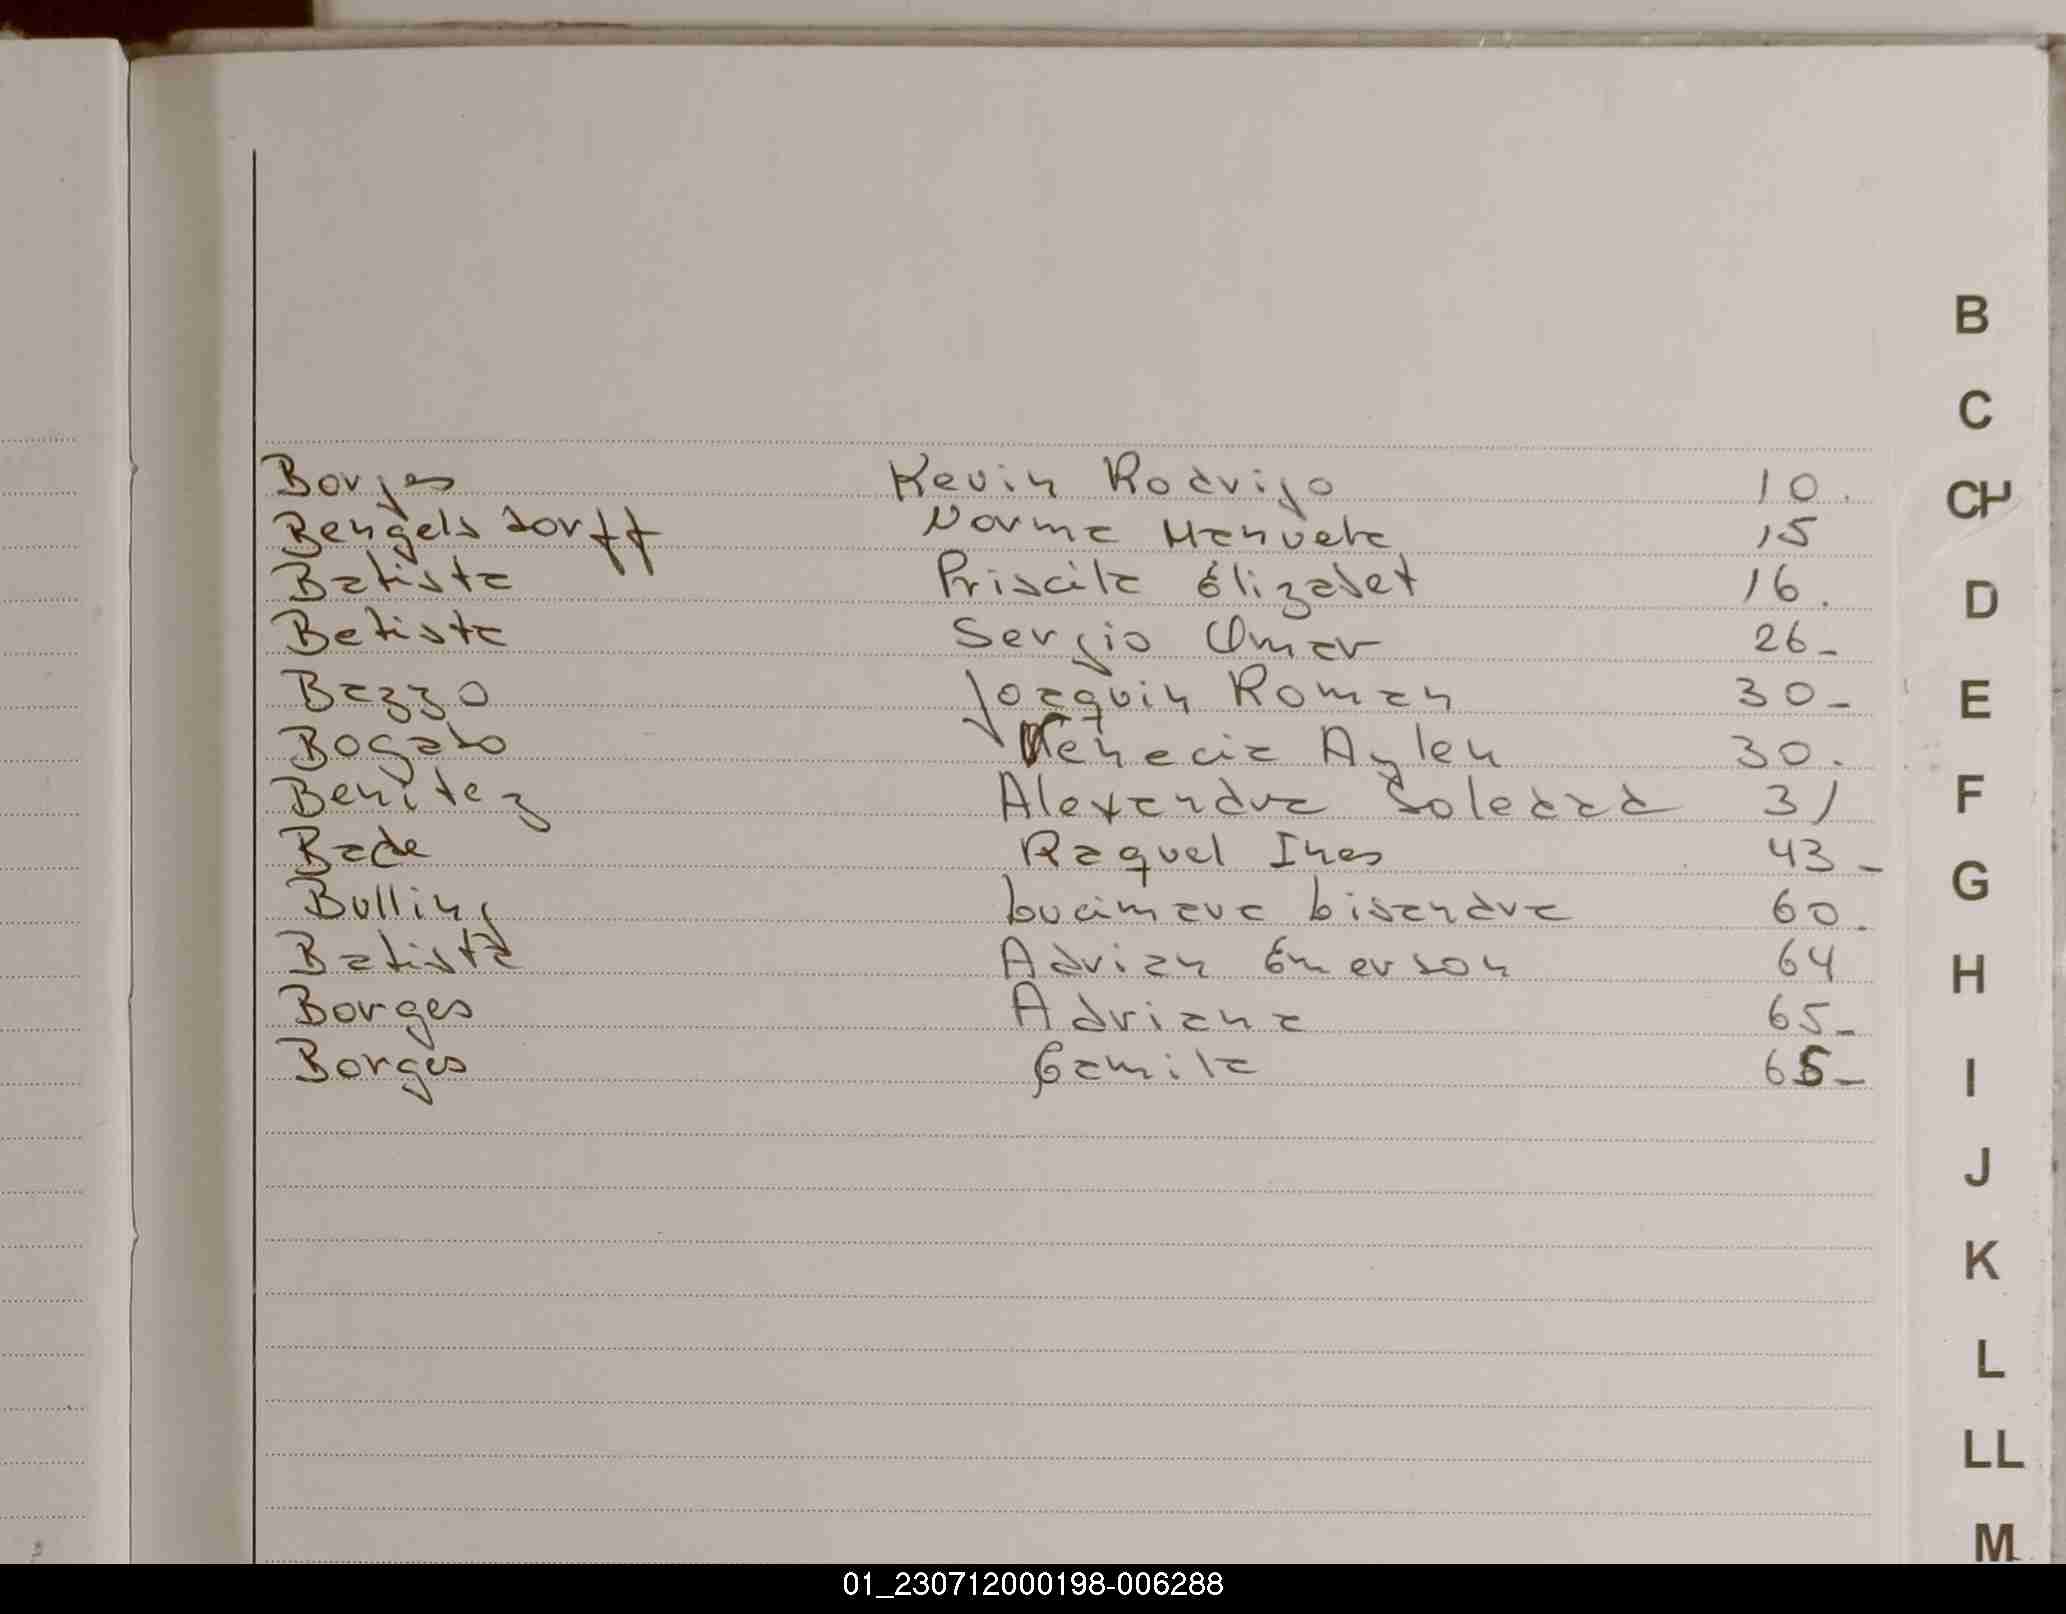 Borges Kevin Rodrigo 10.
Bengelsdorff Norma Manuela 15
Batista Priscila Elizabet 16.
Batista Sergio Omar 26-
Bazzo Joaquin Roman 30-
Bogado Venecia Aylen 30.
Benitez Alexandra Soledad 31
Bade Raquel Ines 43-
Bulling Lucimara Lisandra 60.
Batista Adrian Emerson 64
Borges Adriana 65-
Borges Camila 65-
B
C
CH
D
E
F
G
H
I
J
K
L
LL
M
01_230712000198-006288